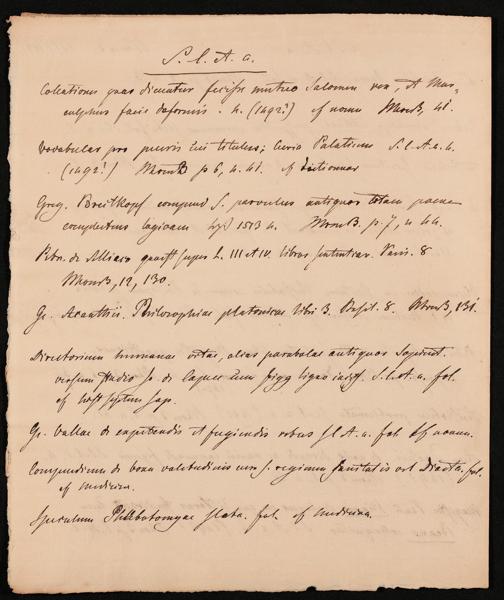 S. l. et a.
Collationes quas dicuntur fecisse mutuo Salomon rex, et Mar-
culphus facie deformis. 4. (1492?) cf Mone Mon B, 41.
Vocabular pro pueris titulus; Curia Palatium S. l. et a. 4.
(1492?) Mon B p 6, n. 41. cf dictionar
Greg. Breitkopf compend s. parvulus antiquor totam paene
complectens logicam Lips 1513 4. Mon B. p. 7, n 44.
Petr. de Alliaco quaest super L. III et IV. libros sententiar. Paris. 8
Mon B, 12, 130.
Ge. Acanthii. Philosophiae platonicae libri 3. Basil. 8. Mon B, 131.
Directorium humanae vitae, alias parabolae antiquor Sapient.
versum studio Jo. de Capua cum figg ligno incis. S. l. et a. fol.
cf hist septem sap.
Ge. Vallae de expetendis et fugiendis rebus s l et a. fol.
Compendium de bona valetudinis s. regimen sanitatis vel Diaeta. fol.
cf medicina.
Speculum Phlebotomyae s l et a. fol. cf medicina.